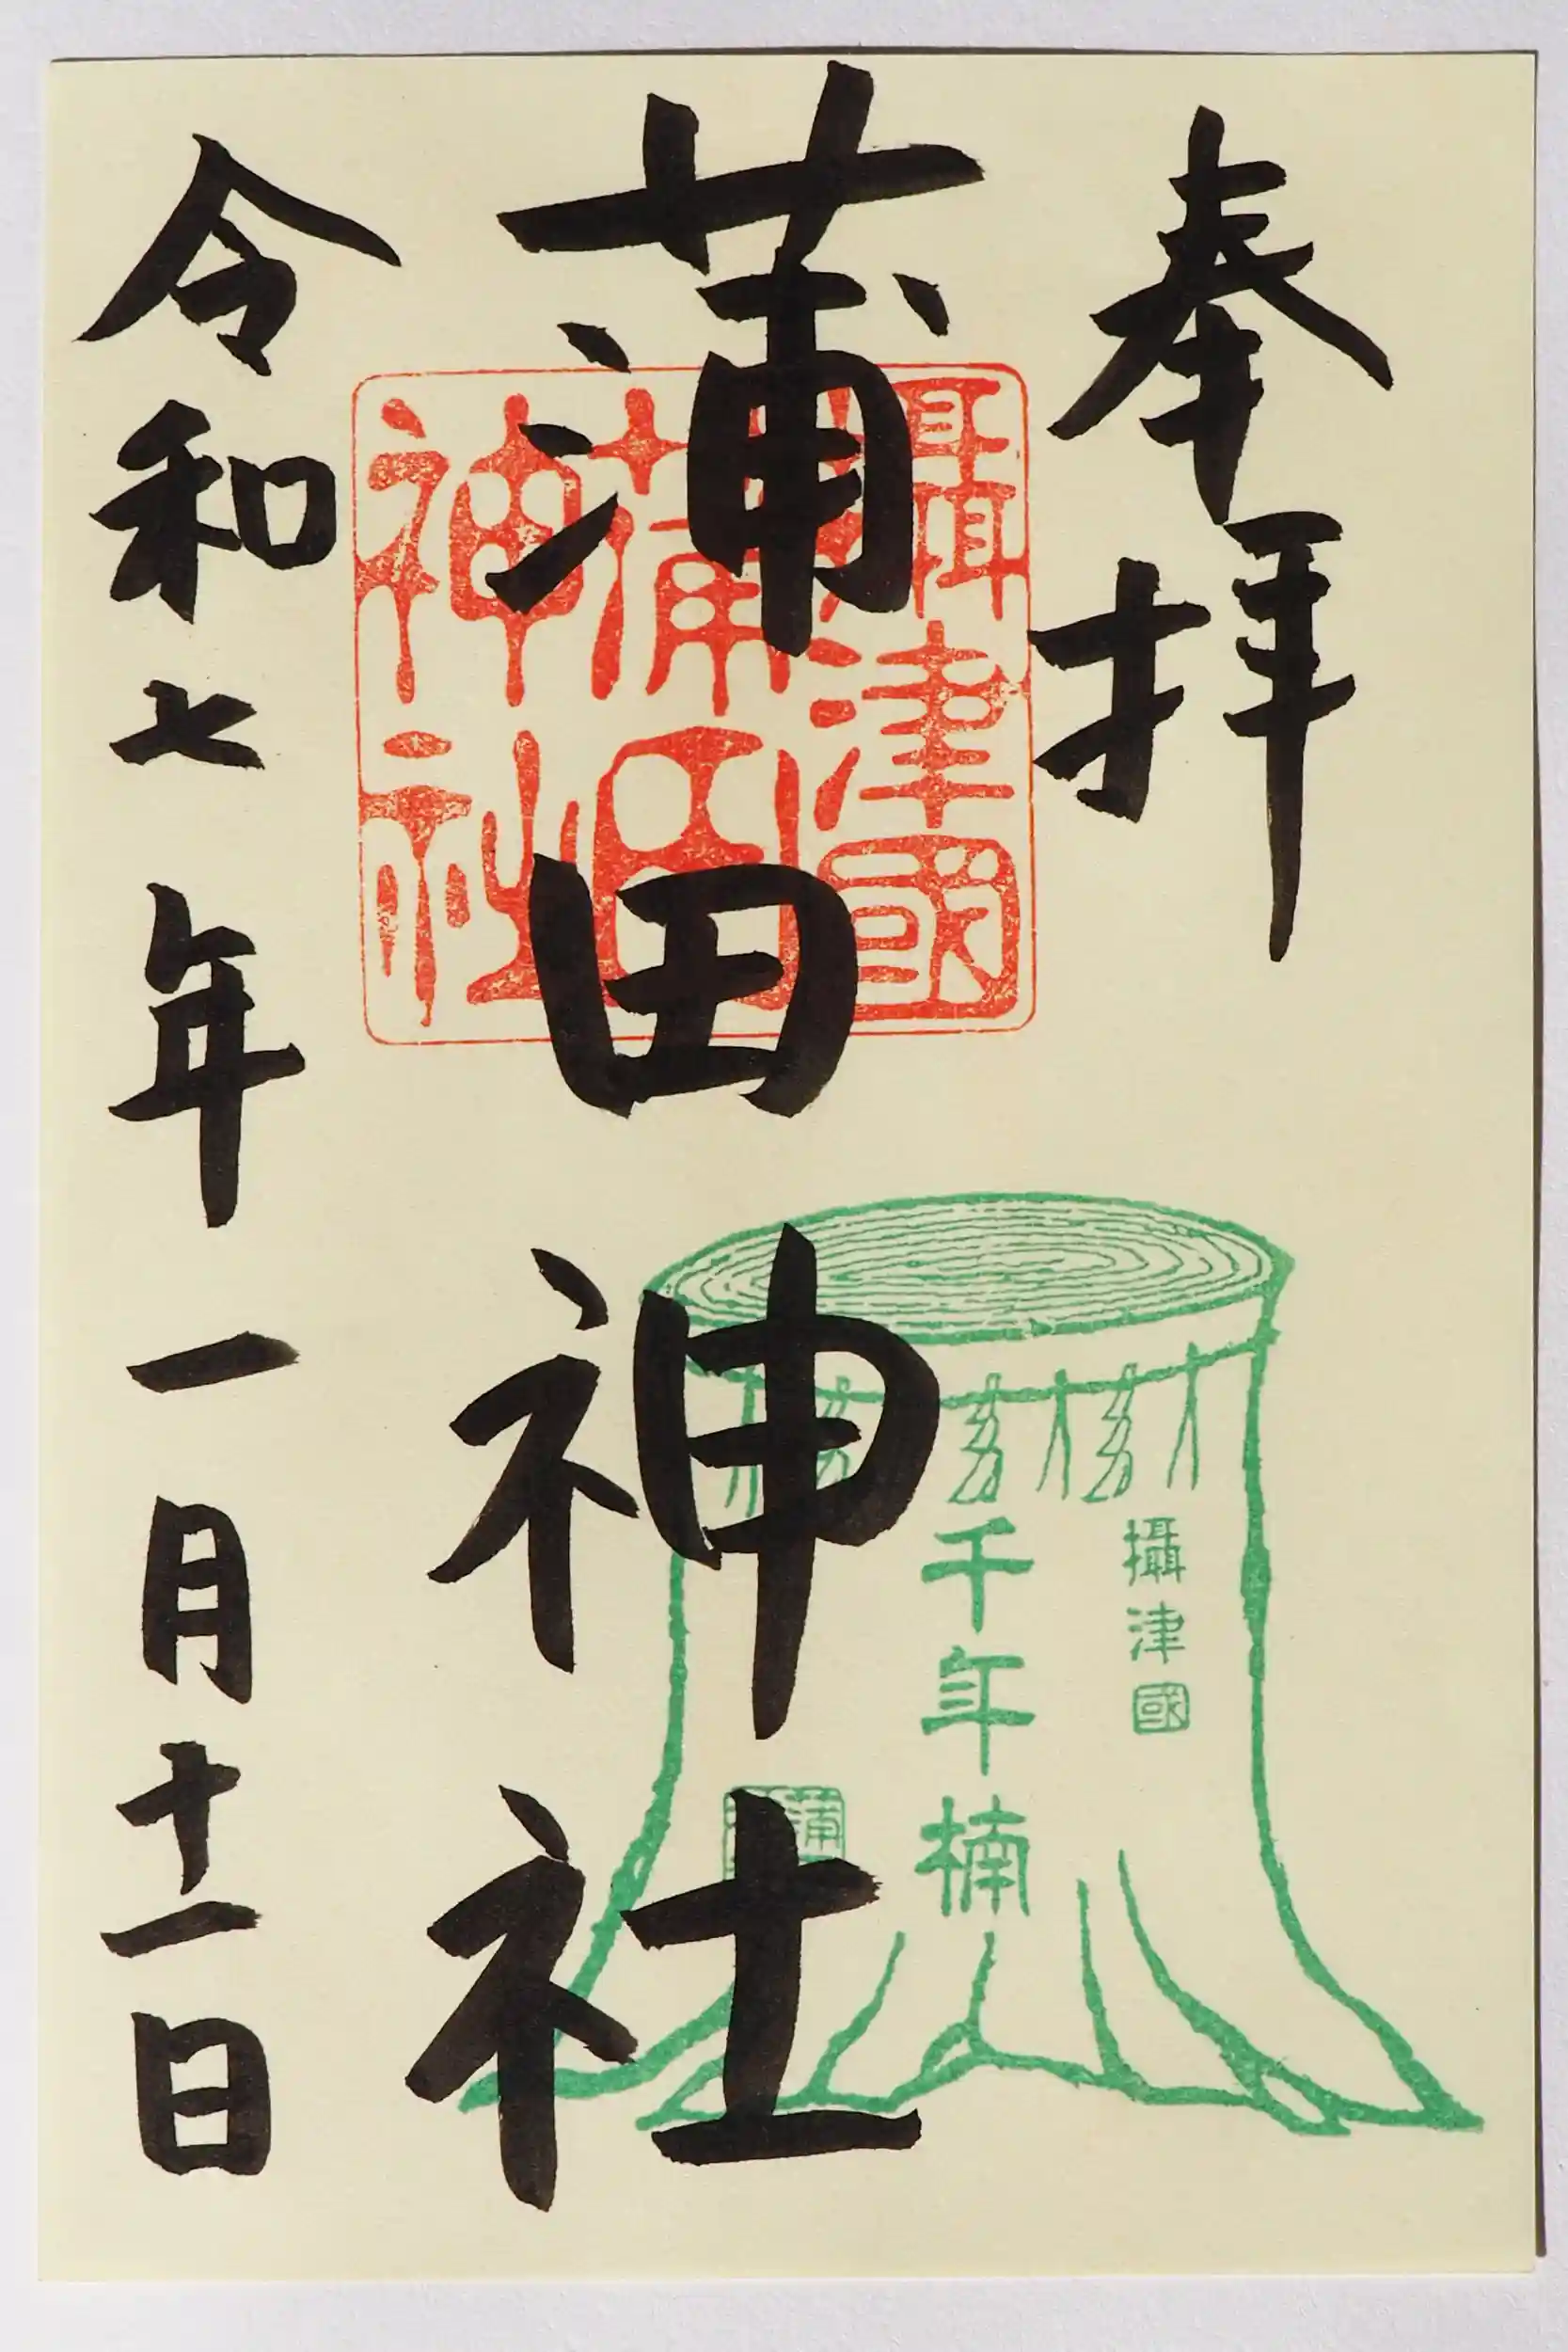 奉拝
蒲田神社
令和七年一月十一日
攝津國
蒲田
神社
攝津國
千年楠